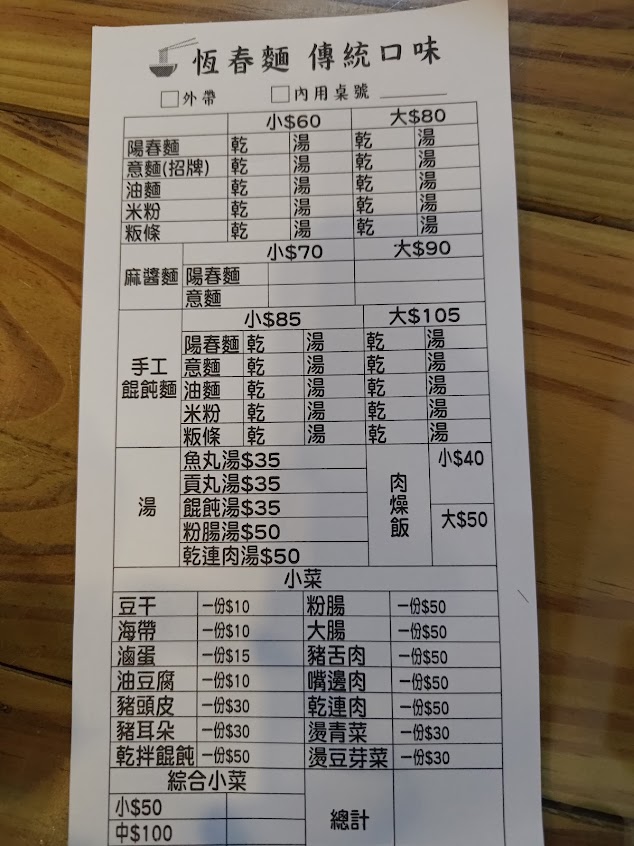 恆春麵 傳統口味
□外帶 □內用桌號
小$60 大$80
陽春麵 乾 湯 乾 湯
意麵(招牌) 乾 湯 乾 湯
油麵 乾 湯 乾 湯
米粉 乾 湯 乾 湯
粄條 乾 湯 乾 湯
小$70 大$90
麻醬麵 陽春麵
意麵
小$85 大$105
手工餛飩麵
陽春麵 乾 湯 乾 湯
意麵 乾 湯 乾 湯
油麵 乾 湯 乾 湯
米粉 乾 湯 乾 湯
粄條 乾 湯 乾 湯
湯
魚丸湯$35
貢丸湯$35
餛飩湯$35
粉腸湯$50
乾連肉湯$50
肉燥飯
小$40
大$50
小菜
豆干 一份$10 粉腸 一份$50
海帶 一份$10 大腸 一份$50
滷蛋 一份$15 豬舌肉 一份$50
油豆腐 一份$10 嘴邊肉 一份$50
豬頭皮 一份$30 乾連肉 一份$50
豬耳朵 一份$30 燙青菜 一份$30
乾拌餛飩 一份$50 燙豆芽菜 一份$30
綜合小菜
小$50
中$100
總計